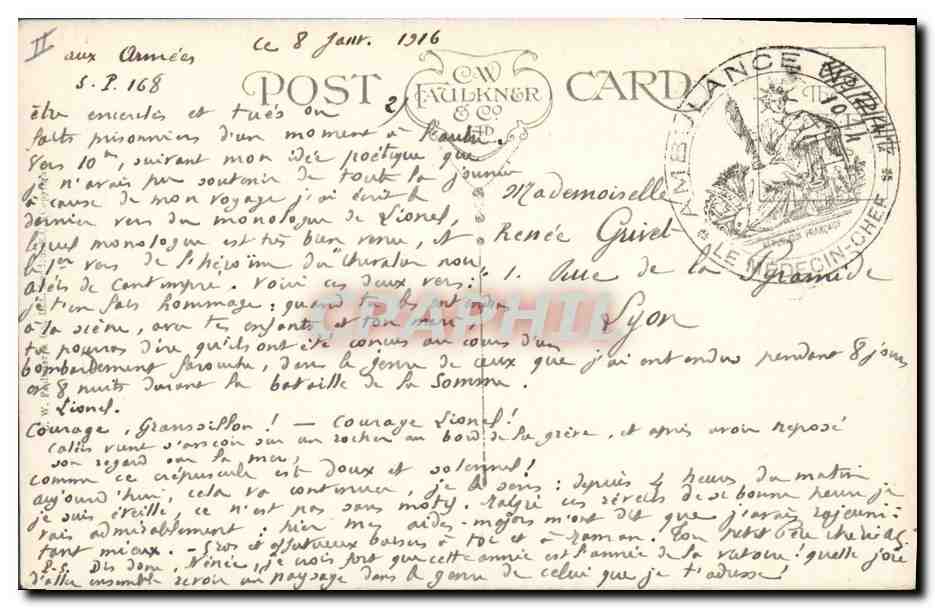 II
aux Armées ce 8 Janv. 1916
S. P. 168
POST CARD
C.W.
FAULKNER
& Co
LTD
AMBULANCE
LE MÉDECIN-CHEF
RÉPUBLIQUE FRANÇAISE
être encerclés et tués ou
faits prisonniers d'un moment à l'autre.
Vers 10h, suivant mon idée poétique que
je n'avais pu soutenir de toute la journée
à cause de mon voyage j'ai écrit le
dernier vers du monologue de Lionel,
lequel monologue est très bien venu, et
le 1er vers de l'héroïne
Calès de Cantimpre. Voici ces deux vers:
je t'en fais hommage: quand tu
à la scène, avec tes enfants et ton mari,
tu pourras dire qu'ils ont été conçus au cours d'un
bombardement farouche, dans le genre de ceux que j'ai entendus pendant 8 jours
et 8 nuits durant la bataille de la Somme.
Lionel.
Courage, Gransillon! — Courage Lionel!
Calès vient s'asseoir sur un rocher au bord de la grève, et après avoir reposé
son regard sur la mer,
Comme ce crépuscule est doux et solennel!
aujourd'hui, cela va continuer, je le sens: depuis 4 heures du matin
je suis éveillé, ce n'est pas sans motif. Malgré ces réveils de si bonne heure je
vais admirablement: hier mes aides-majors m'ont dit que j'avais rajeuni -
tant mieux. - Gros et affectueux baisers à toi et à maman. Ton petit Père chéri
P.S. Dis donc, Nénée, je crois fort que cette année est l'année de la victoire! quelle joie
d'aller ensemble revoir un paysage dans le genre de celui que je t'adresse!
Mademoiselle
Renée Grivet
1. Rue de la Pyramide
Lyon
CPAPHIL